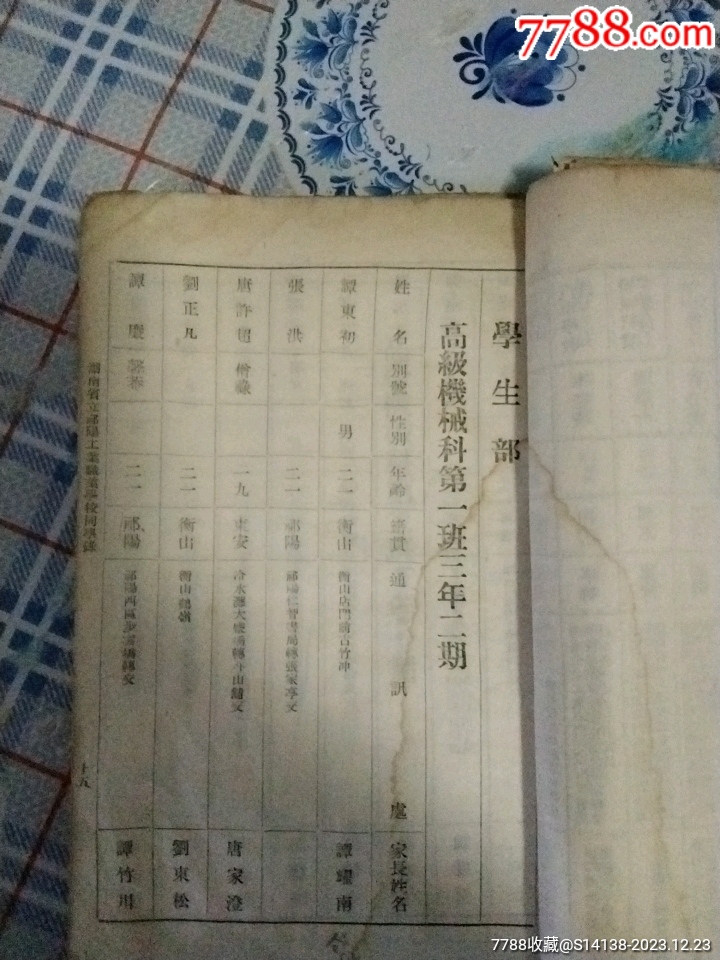 7788.com
學生部
高級機械科第一班三年二期
姓名 別號 性別 年齡 籍貫 通訊處 家長姓名
譚東初 男 二一 衡山 衡山店門前古竹冲 譚耀南
張洪 二一 祁陽 祁陽仁智書局轉張家亭交
唐許超 僧緣 一九 東安 冷水灘大盛 轉 山舖交 唐家澄
劉正凡 二一 衡山 衡山鶴嶺 劉東松
譚 二一 祁陽 祁陽西區 轉交 譚竹川
湖南省立祁陽工業職業學校同學錄
十五
7788收藏@S14138-2023.12.23